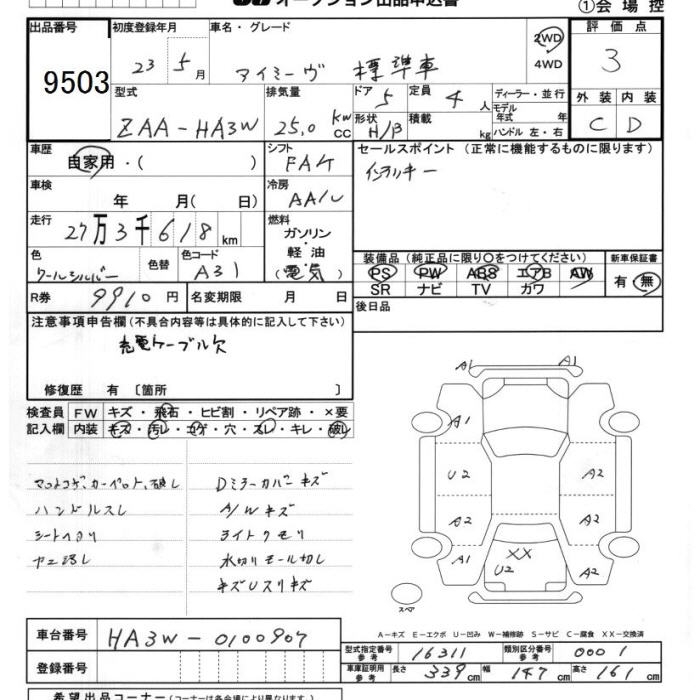 オークション出品申込書
①会場控
出品番号
9503
初度登録年月
23 5月
車名・グレード
アイミーヴ 標準車
2WD
4WD
評価点
3
型式
ZAA-HA3W
排気量
25.0 kw
cc
ドア
5
形状
H/B
定員
4人
積載
kg
ディーラー・並行
モデル
年式 年
ハンドル 左・右
外装 内装
C D
車歴
自家用・( )
シフト
FAT
セールスポイント (正常に機能するものに限ります)
インテリキー
車検
年 月( 日)
冷房
AAC
走行
27万3千618km
燃料
ガソリン・
軽油・
(電気)
色
クールシルバー
色替
色コード
A31
装備品 (純正品に限り○をつけてください)
新車保証書
PS PW ABS エアB AW
SR ナビ TV カワ
有・無
R券
9910円
名変期限 月 日
後日品
注意事項申告欄 (不具合内容等は具体的に記入して下さい)
充電ケーブル欠
修復歴 有 〔箇所 〕
検査員
記入欄
FW キズ・飛石・ヒビ割・リペア跡・×要
内装 キズ・汚レ・コゲ・穴・スレ・キレ・破レ
マットコゲ、カーペット、破レ
ハンドルスレ
シートヘタリ
Dミラーカバーキズ
A/Wキズ
ライトクモリ
水切りモール切レ
キズUスリキズ
A1 A1
A1
U2 A2
A2 A2
A1 XX A2
U2
スペア
A-キズ E-エクボ U-凹み W-補修跡 S-サビ C-腐食 XX-交換済
車台番号
HA3W-0100907
登録番号
型式指定番号
参考
16311
類別区分番号
参考
0001
車庫証明用
参考
長さ 339cm 幅 147cm 高さ 161cm
希望出品コーナー (コーナーは各会場により異なります。)